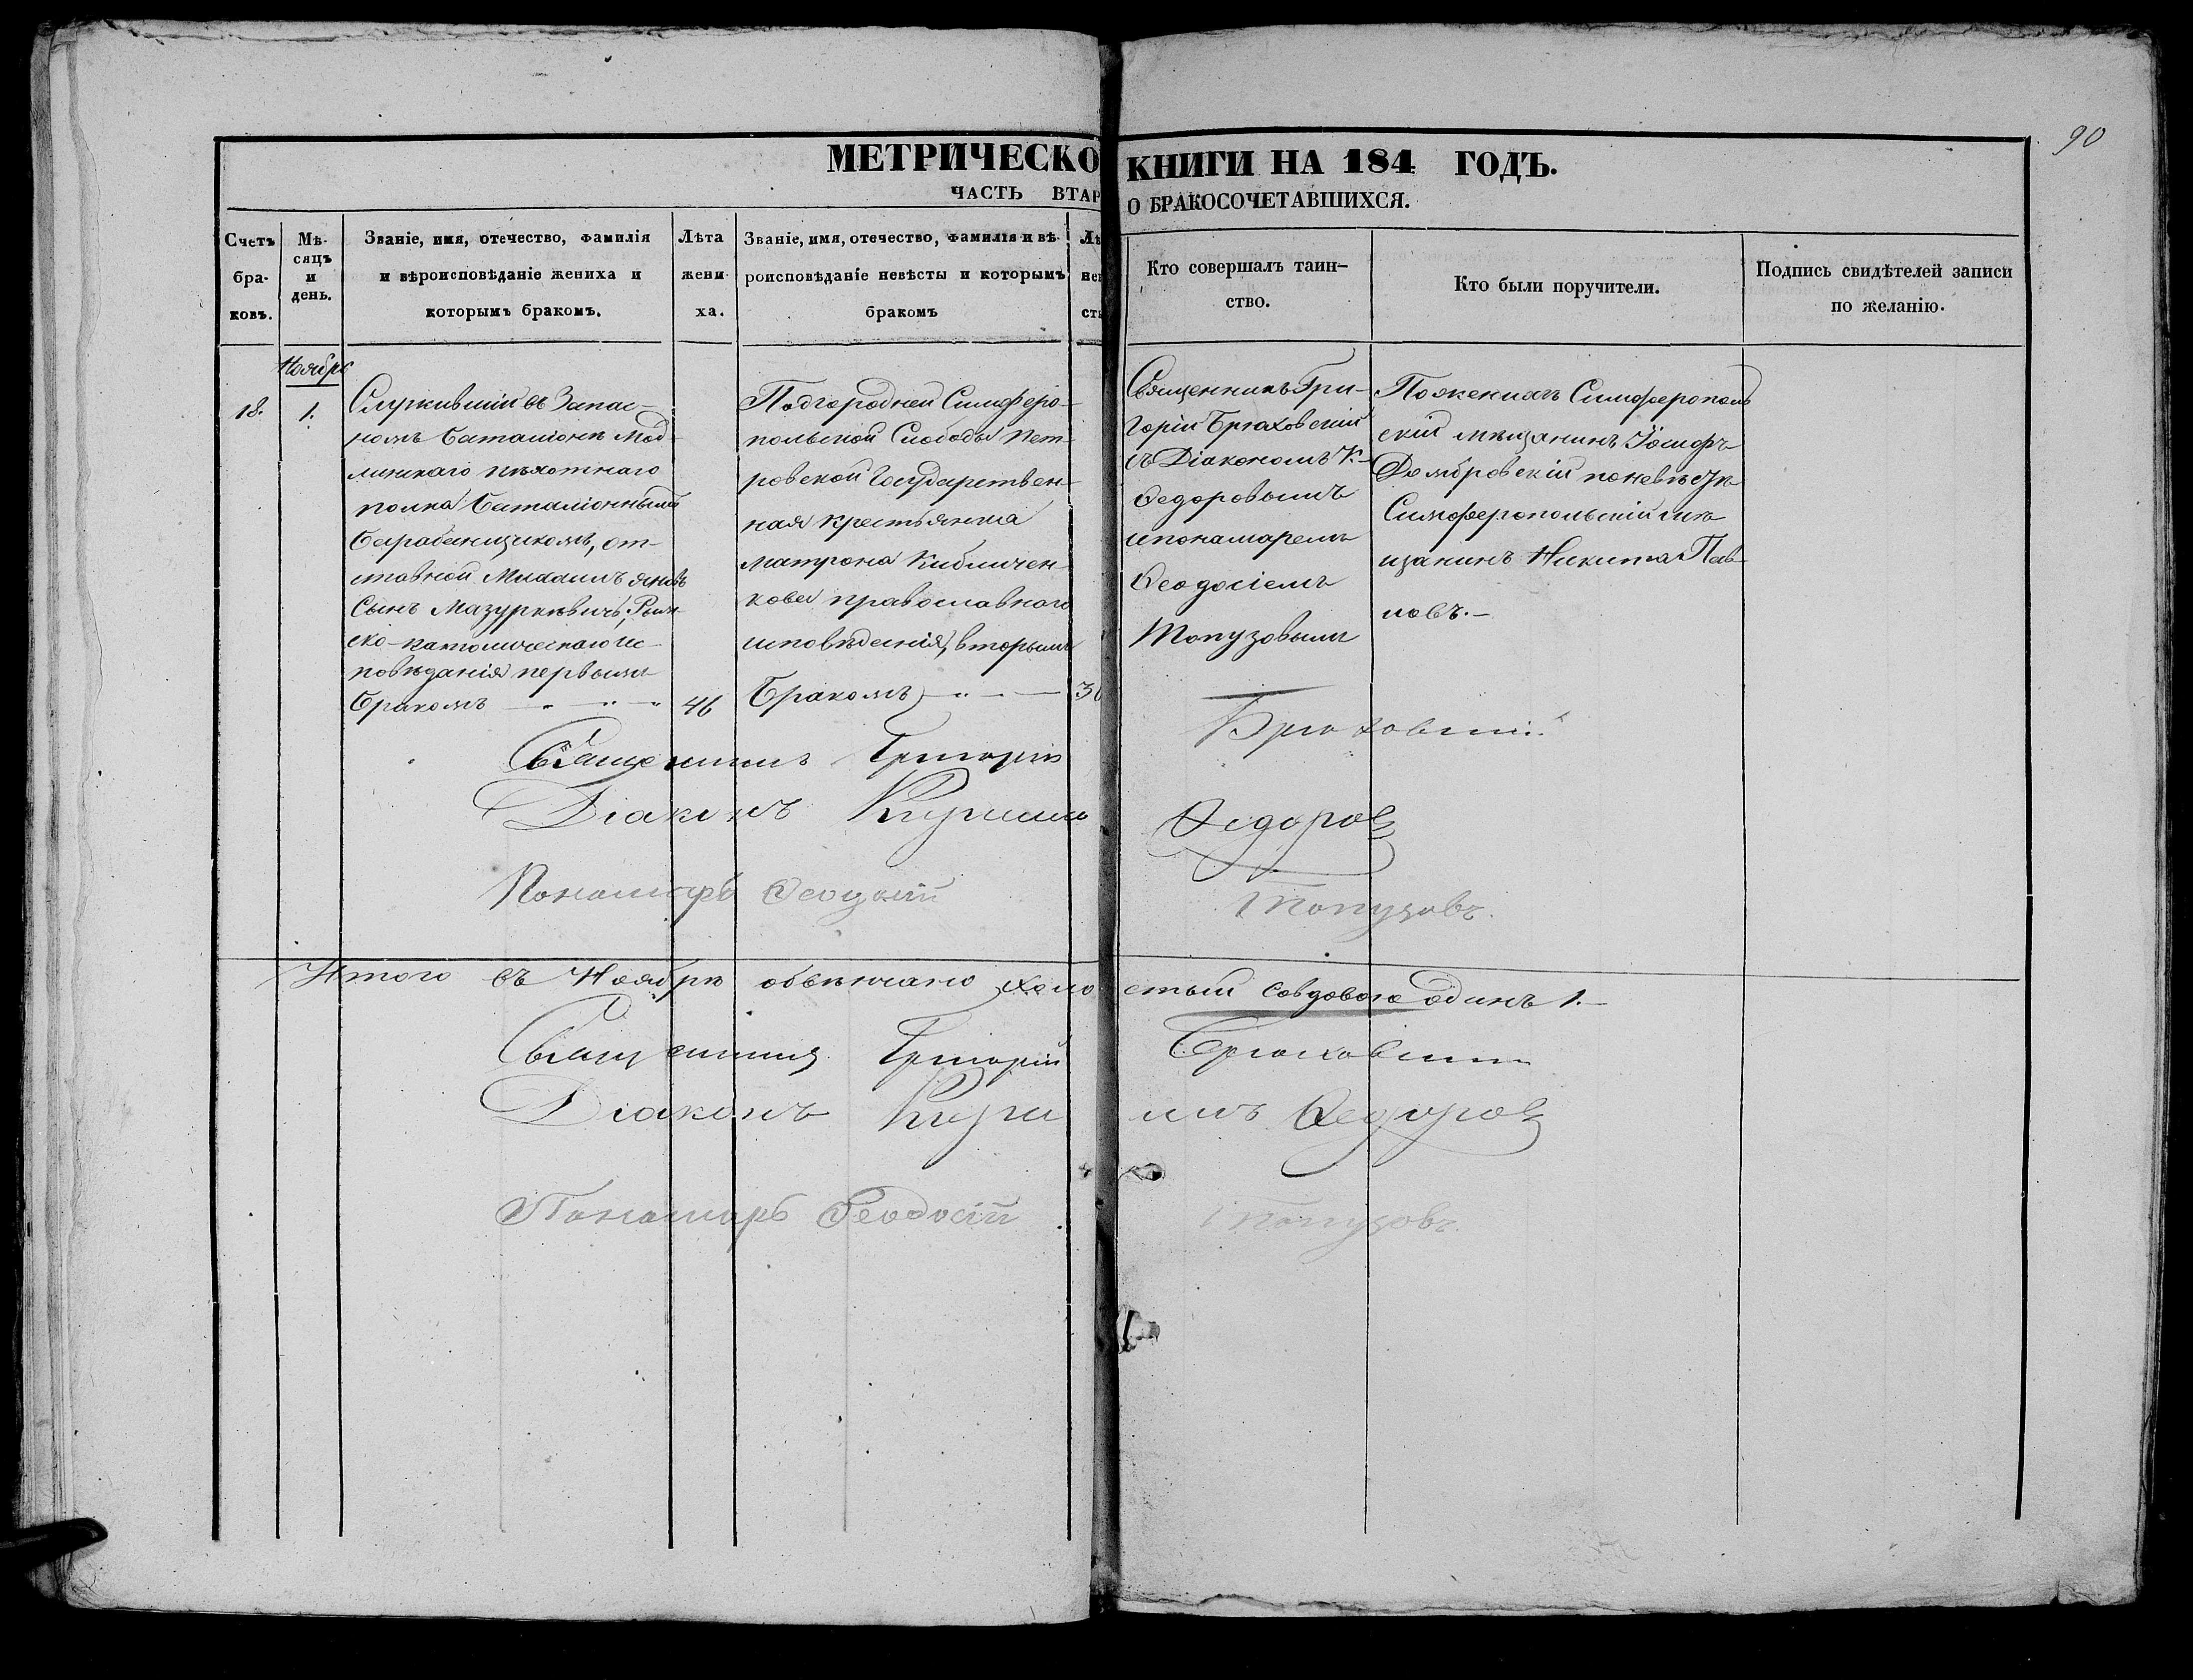 90
МЕТРИЧЕСКО КНИГИ НА 184 ГОДЪ.
ЧАСТЬ ВТАР О БРАКОСОЧЕТАВШИХСЯ.
Счетъ
бра-
ковъ.
Мѣ-
сяцъ
и
день.
Званіе, имя, отечество, фамилія
и вѣроисповѣданіе жениха и
которымъ бракомъ.
Лѣта
жени-
ха.
Званіе, имя, отечество, фамилія и вѣ-
роисповѣданіе невѣсты и которымъ
бракомъ
Лѣ
нев
сты
Кто совершалъ таин-
ство.
Кто были поручители.
Подпись свидѣтелей записи
по желанію.
Ноябрь
18.
1.
Служившій въ Запас-
номъ баталіонѣ Мод-
линскаго пѣхотнаго
полка баталіоннымъ
барабанщикомъ, от-
ставной Михаилъ Яновъ
сынъ Мазуркѣвичъ, Рим-
ско-католическаго ис-
повѣданія первымъ
бракомъ
46
Подгородней Симферо-
польской Слободы Пет-
ровской Государствен-
ная крестьянка
Матрона Кибличен-
кова православнаго
исповѣданія, вторымъ
бракомъ
30
Священникъ Гри-
горій Брюховскій
съ Діакономъ К.
Федоровымъ
и понамаремъ
Феодосіемъ
Топузовымъ
По женихѣ Симферополь
скій мѣщанинъ Іосифъ
Домбровскій по невѣстѣ
Симферопольскій мѣ
щанинъ Никита Пав-
ловъ.-
Священникъ Григорій Брюховскій
Діаконъ Кирилъ Федоровъ
Понамарь Феодосій Топузовъ.
Итого въ Ноябрѣ обвѣнчано холо стый со вдовою одинъ 1.-
Священникъ Григорій Брюховскій
Діаконъ Кири лъ Федоровъ
Понамарь Феодосій Топузовъ.